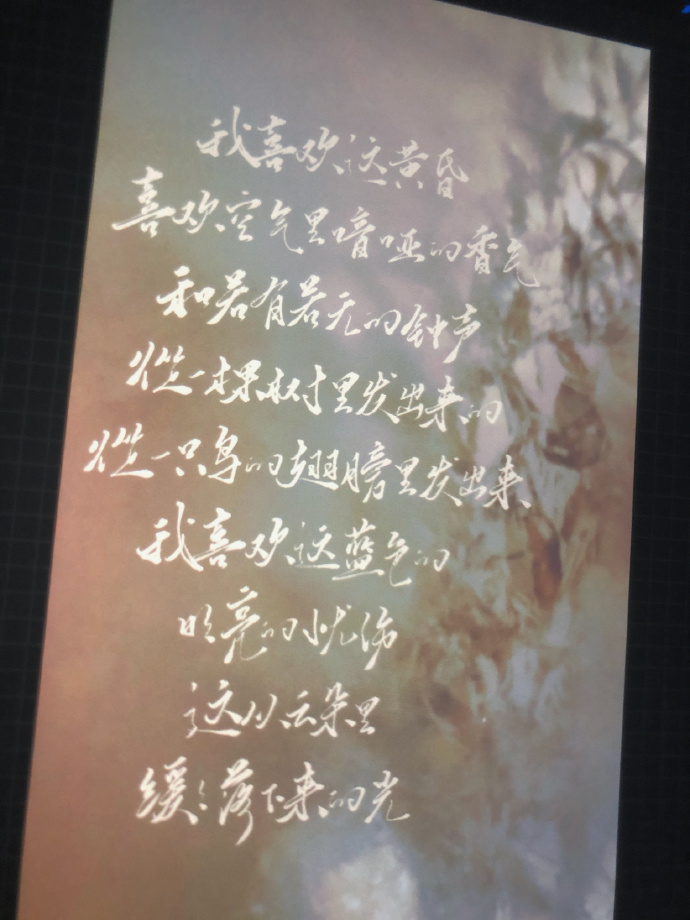 我喜欢这黄昏
喜欢空气里喑哑的香气
和若有若无的钟声
从一棵树里发出来的
从一只鸟的翅膀里发出来
我喜欢这蓝色的
明亮的忧伤
这从云朵里
缓缓落下来的光